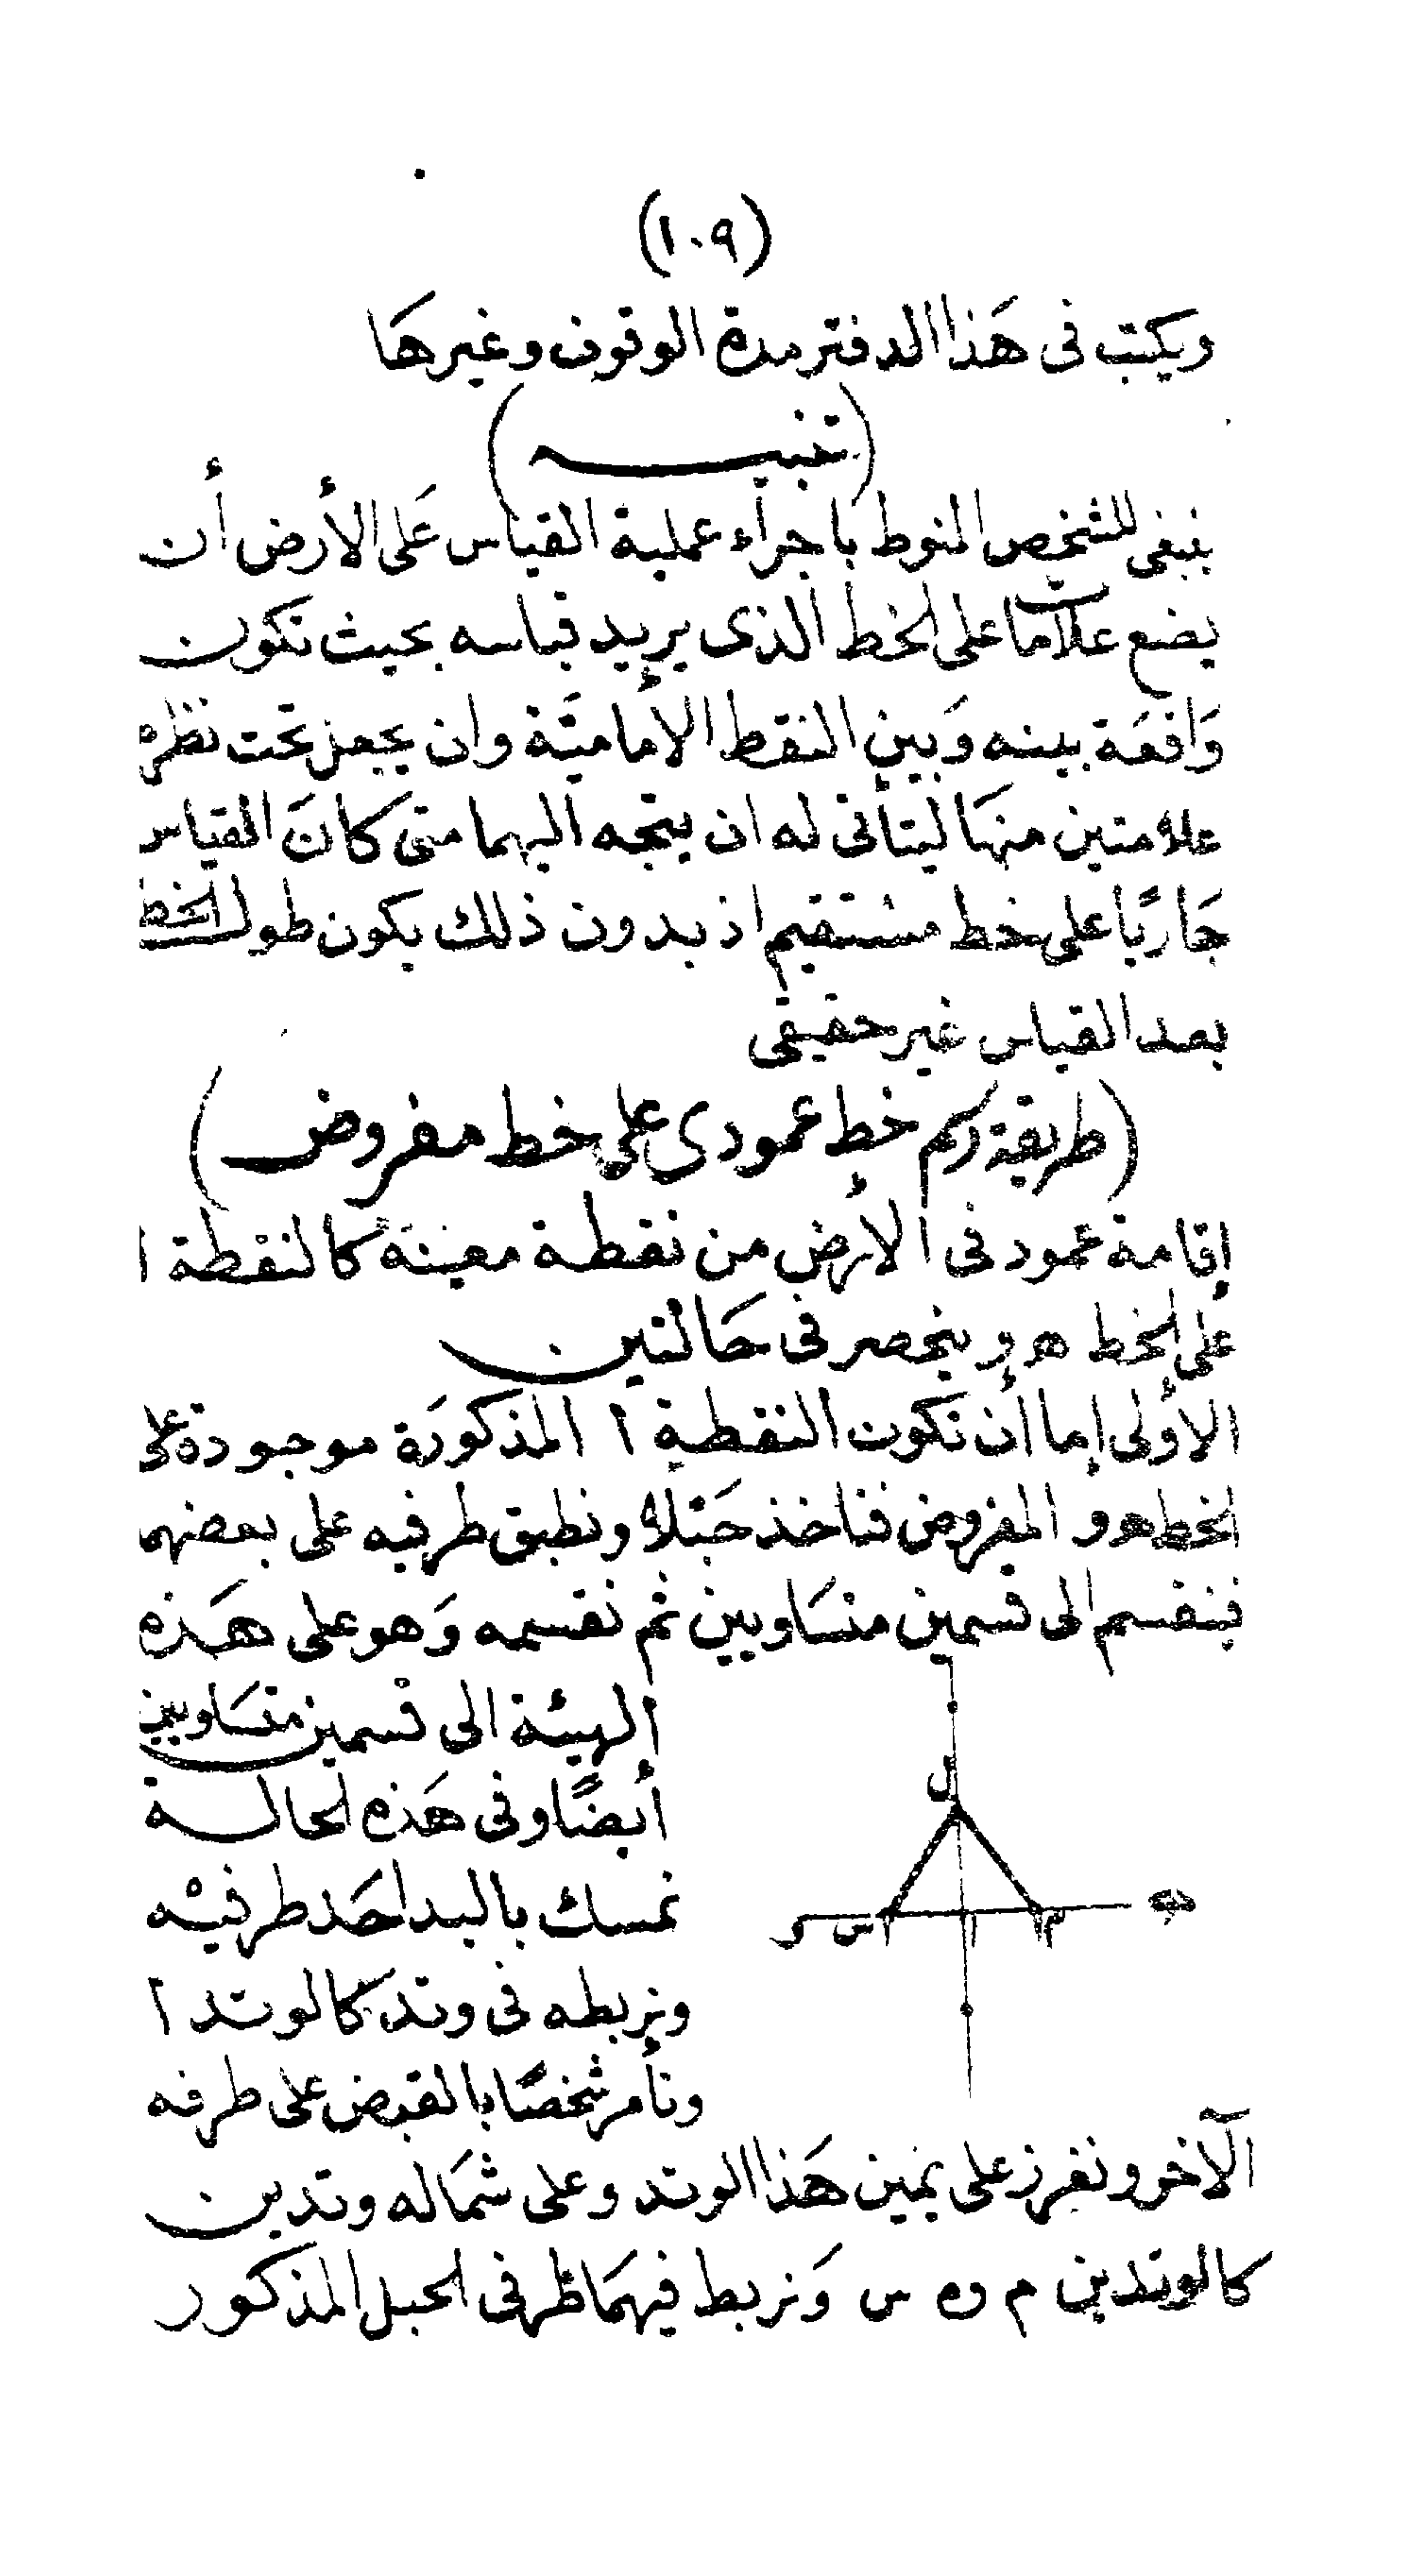 (١٠٩)
ويكتب فى هَذا الدفتر مدة الوقوف وغيرهَا
(تنبيه)
ينبغى للشخص المنوط باجرآء عملية القياس عَلى الأرض أن
يضع علاماتٍ على الخط الذى يريد قياسه بحيث تكون
وَاقعَة بينه وَبين النقط الأماميَّة وان يجعل تحت نظره
علامتين منهَا ليتأتى له ان يتجه اليهما متى كانَ القياس
جَاريًا على خط مستقيم اذ بدون ذلك يكون طول الخط
بعد القياس غير حقيقى
(طريقة رسم خط عمودى على خط مفروض)
إقامة عمود فى الأرض من نقطة معينة كالنقطة ا
على الخط هـ و ينحصر فى حَالتين
الأولى إما أن تكون النقطة ا المذكورَة موجودة على
الخط هـ و المفروض فناخذ حَبْلا ونطبق طرفيه على بعضهما
فينقسم الى قسمين متسَاويين ثم نقسمه وَهو على هَذه
الهيئة الى قسمين متسَاويين
أيضًا وفى هَذه الحالة
نمسك باليد احَد طرفيْه
ونربطه فى وتد كالوتد ا
ونأمر شخصًا بالقبض على طرفه
ل
هـ م ا س و
الآخر ونغرز على يمين هَذا الوتد وعلى شمَاله وتدين
كالوتدين م و س وَنربط فيهمَا طرفى الحبل المذكور